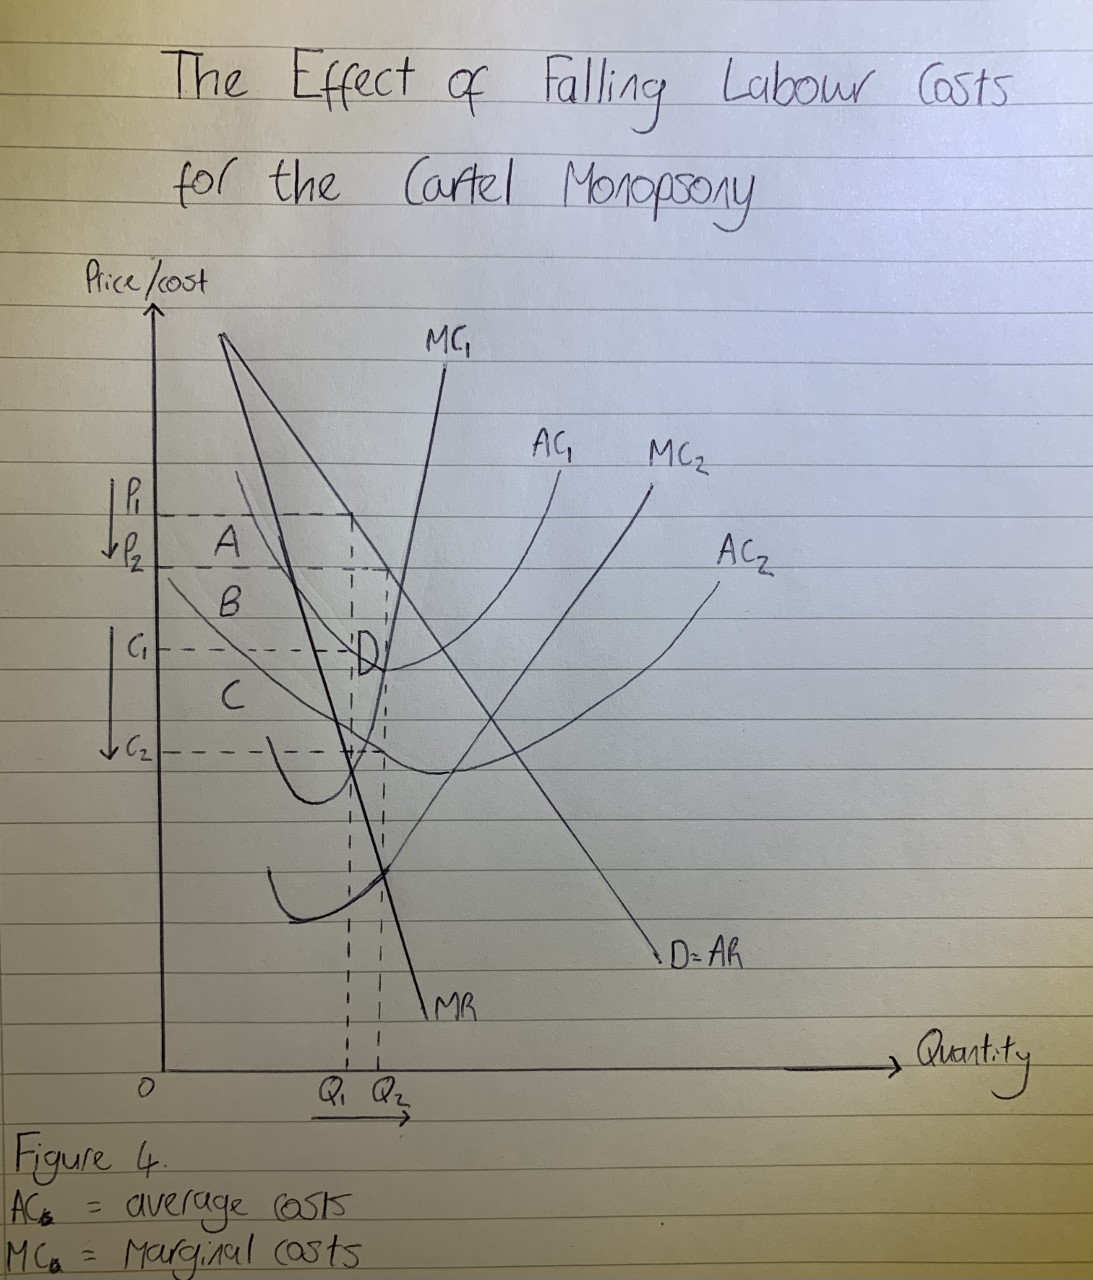 The Effect of Falling Labour Costs
for the Cartel Monopsony
Price/cost
MC₁
AC₁
MC₂
P₁
A
P₂
AC₂
B
C₁
D
C
C₂
D=AR
MR
Quantity
0
Q₁ Q₂
Figure 4.
AC = average costs
MC = Marginal costs